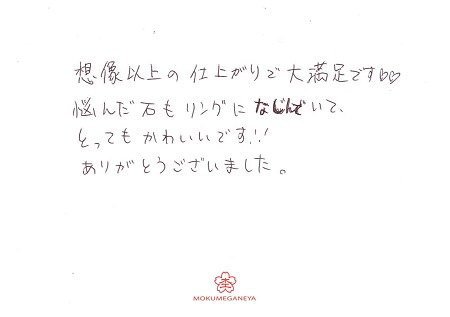 想像以上の仕上がりで大満足です♡♡
悩んだ石もリングになじんでいて、
とってもかわいいです!!
ありがとうございました。
杢
MOKUMEGANEYA